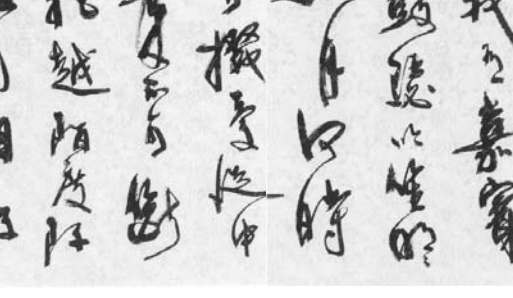 我有嘉賓
鼓瑟吹笙明〻
月何時
可掇憂從中
來不可斷
絕越陌度阡
相存